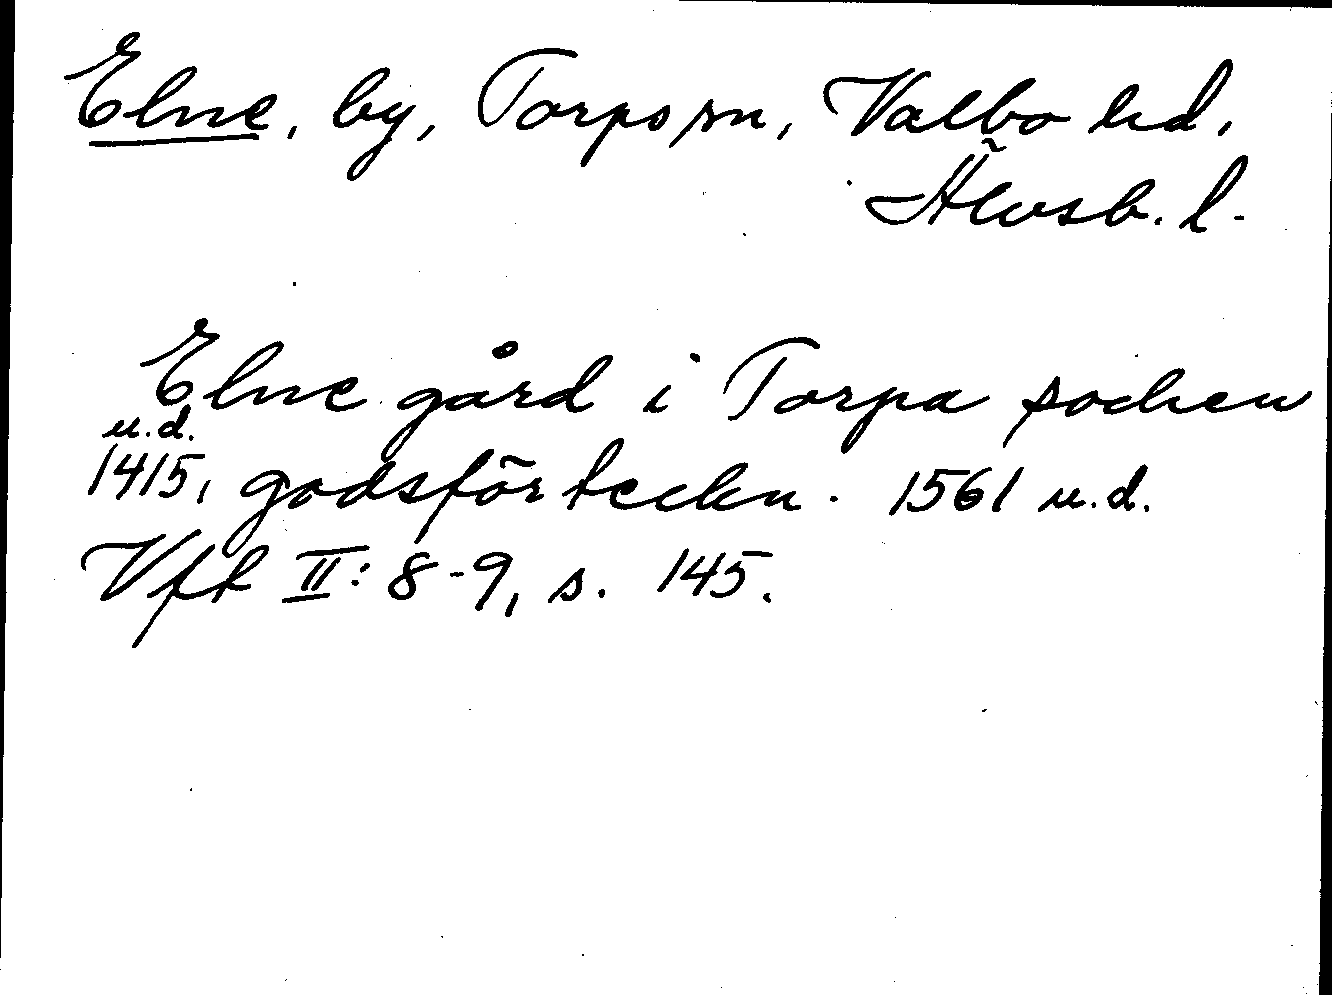 Elne, by, Torps sn, Valbo hd,
Älvsb. l.
Elne gård i Torpa sochen
u.d.
1415, godsförteckn. 1561 u.d.
Vft II: 8-9, s. 145.